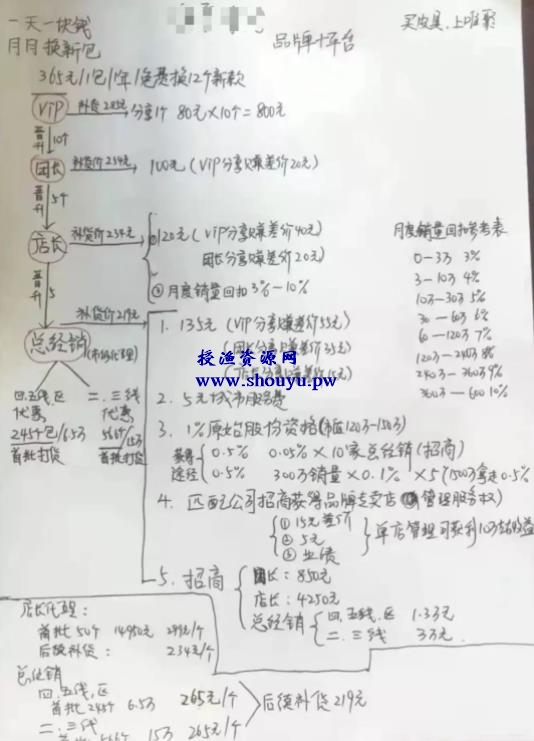 一天一块钱
月月换新包
品牌+平台
买皮具,上唯聚
365元/1包/1年/免费换12个新款
VIP 补货285元 分享1个 80元×10个=800元
晋升 10个
团长 补货价254元 100元(VIP分享赚差价20元)
晋升 5个
店长 补货价234元 ①120元(VIP分享赚差价40元)
团长分享赚差价20元)
②月度销量回扣3%-10%
月度销量回扣参考表
0-3万 3%
3-10万 4%
10万-30万 5%
30-60万 6%
60-120万 7%
120万-240万 8%
240万-360万 9%
360万-600 10%
晋升 5
总经销 (市场代理) 补货价219元
1. 135元(VIP分享赚差价55元)
(团长分享赚差价35元)
(店长分享赚差价15元)
授渔资源网
www.shouyu.pw
2. 5元城市服务费
3. 1%原始股份资格(市值120万-150万)
获得途径 0.5% 0.05%×10家总经销(招商)
0.5% 300万销量×0.1%×5(1500万拿走0.5%
4. 匹配公司招商获得品牌专卖店(管理服务权)
①15元差价
②5元
③业绩
单店管理可获利10万左右收益
四.五线.区 代惠
245个包/6.5万
首批打货
二.三线 代惠
566个/15万
首批打货
5. 招商
团长:850元
店长:4250元
总经销 四.五线.区 1.3万
二.三线 3万元.
店长代理:
首批50个 14950元 299元/个
后续补货: 234元/个
总经销
四.五线.区
首批245个 6.5万 265元/个
后续补货219元
二.三线
首批566个 15万 265元/个